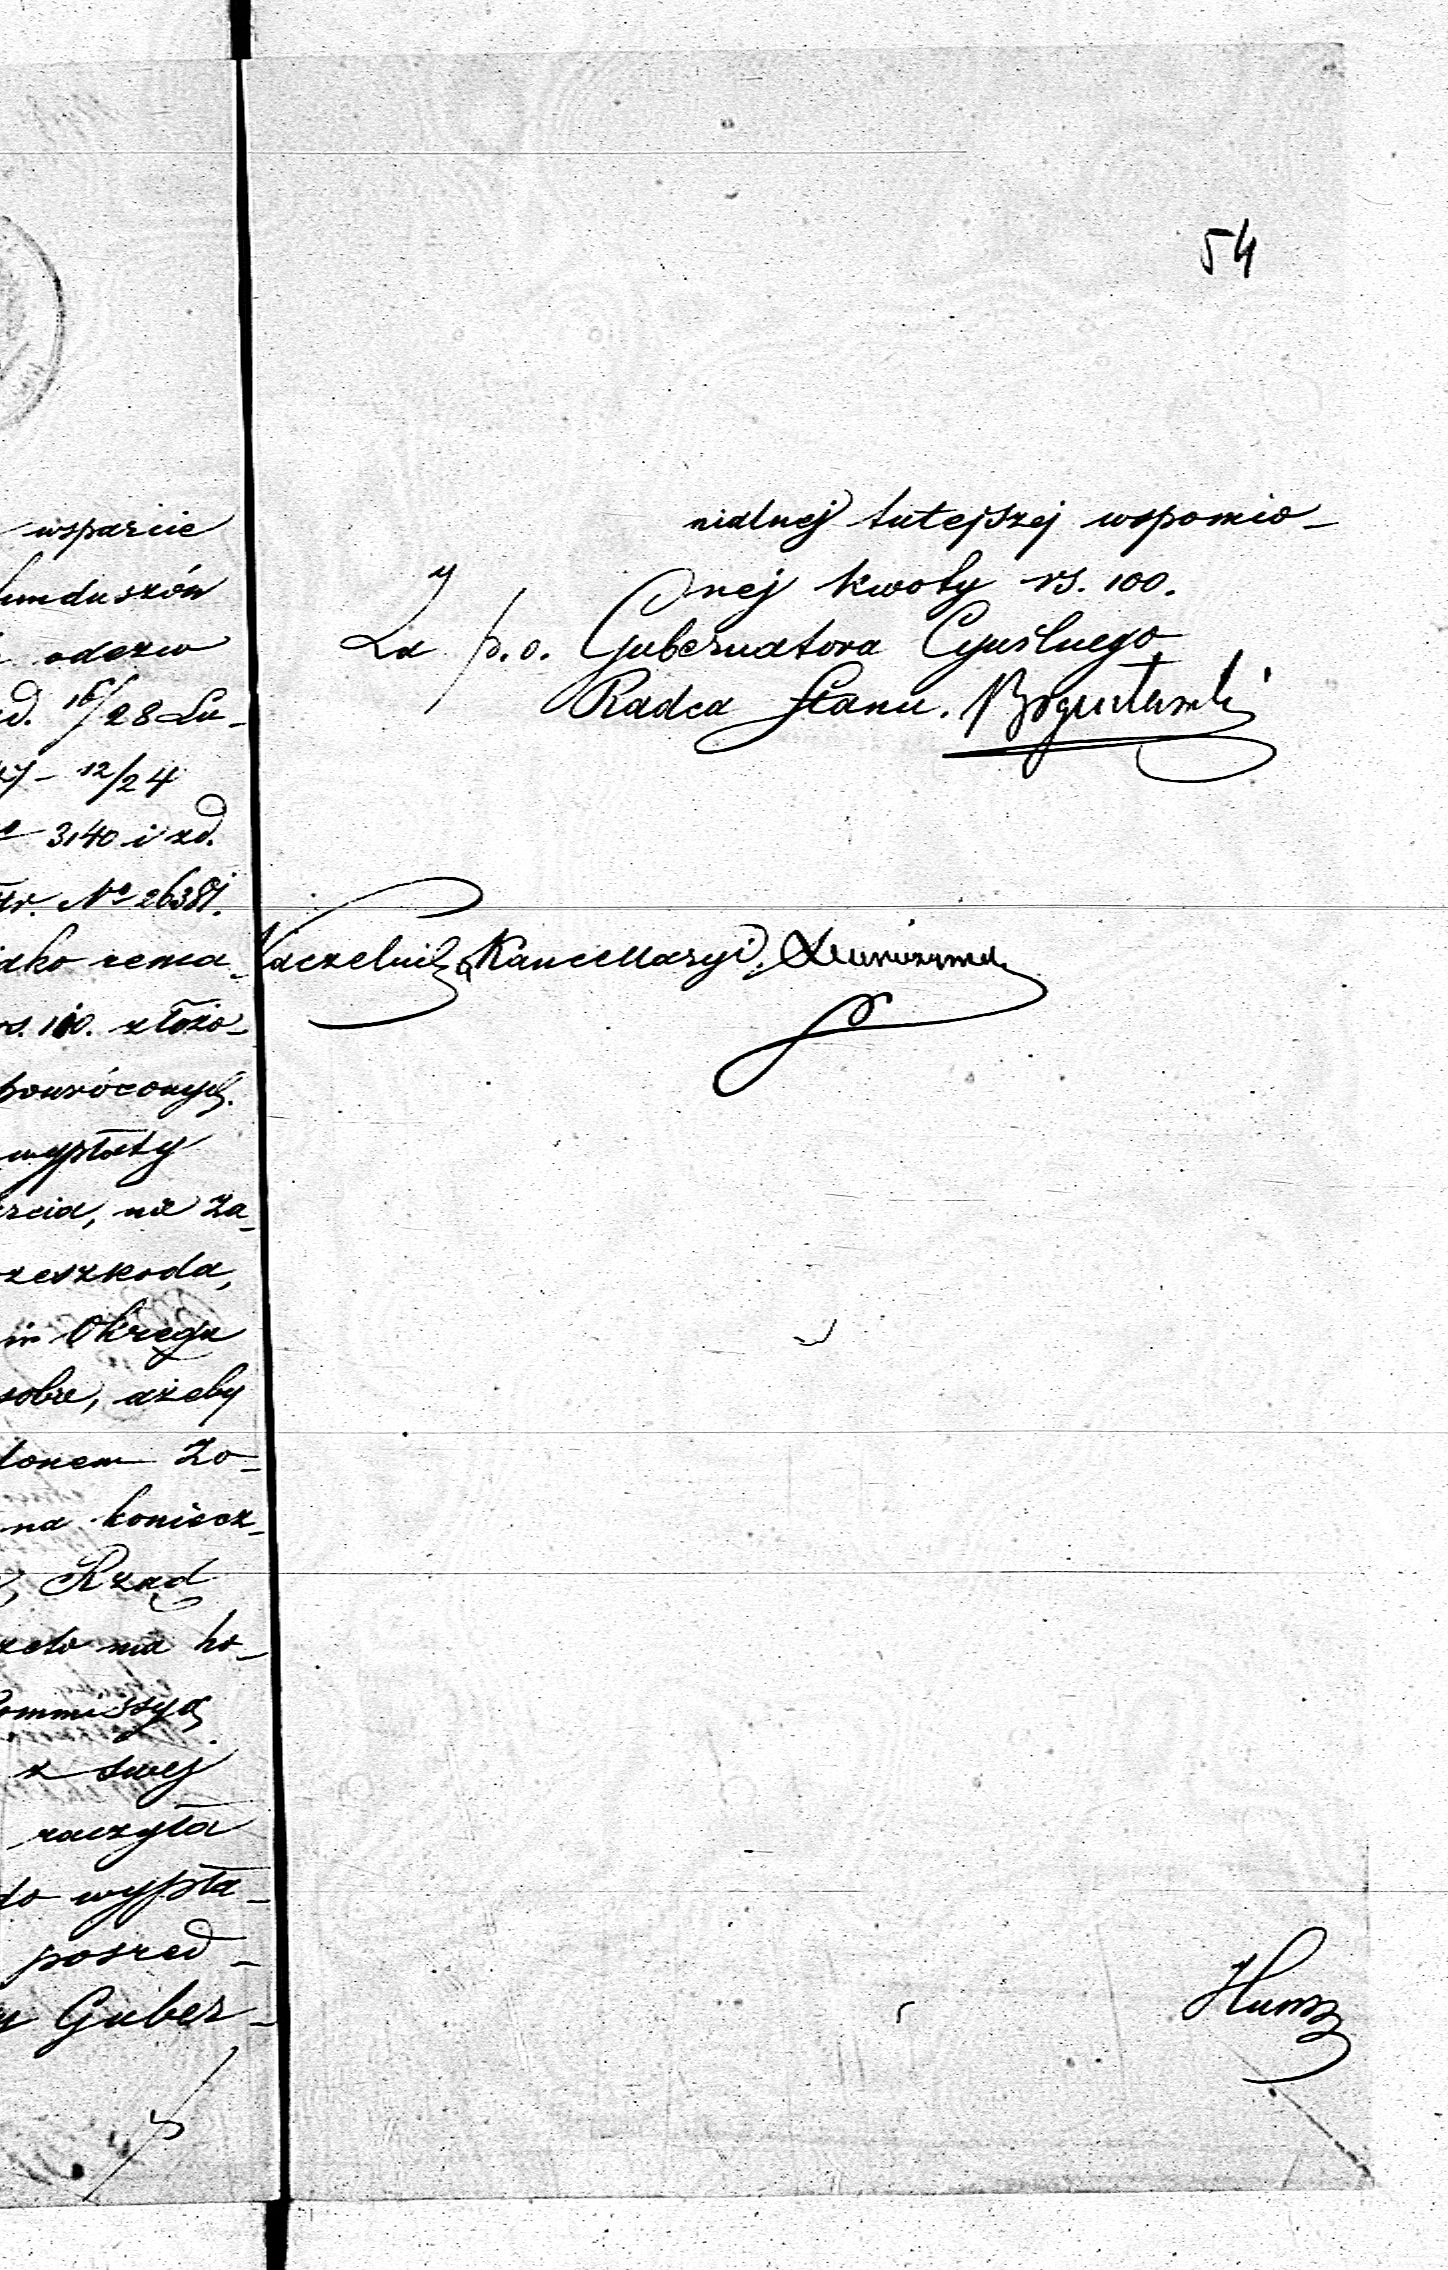 wsparcie
funduszów
odezw
zd. 16/28 Lu-
12/24
3140 i zd.
No 26381.
jako rema-
rs. 100. złożo-
powróconych.
wypłaty
na za-
rzeszkoda,
Okręgu
sobie, ażeby
Zo-
na koniecz-
Rząd
ma ho-
Kommissya
z swej
raczyła
do wypła-
posred-
Guber-
54
nialnej tutejszej wspomio-
nej kwoty rs. 100.
Za p.o. Gubernatora Cywilnego
Radca Stanu. Bogusławski
Naczelnik Kancellaryi